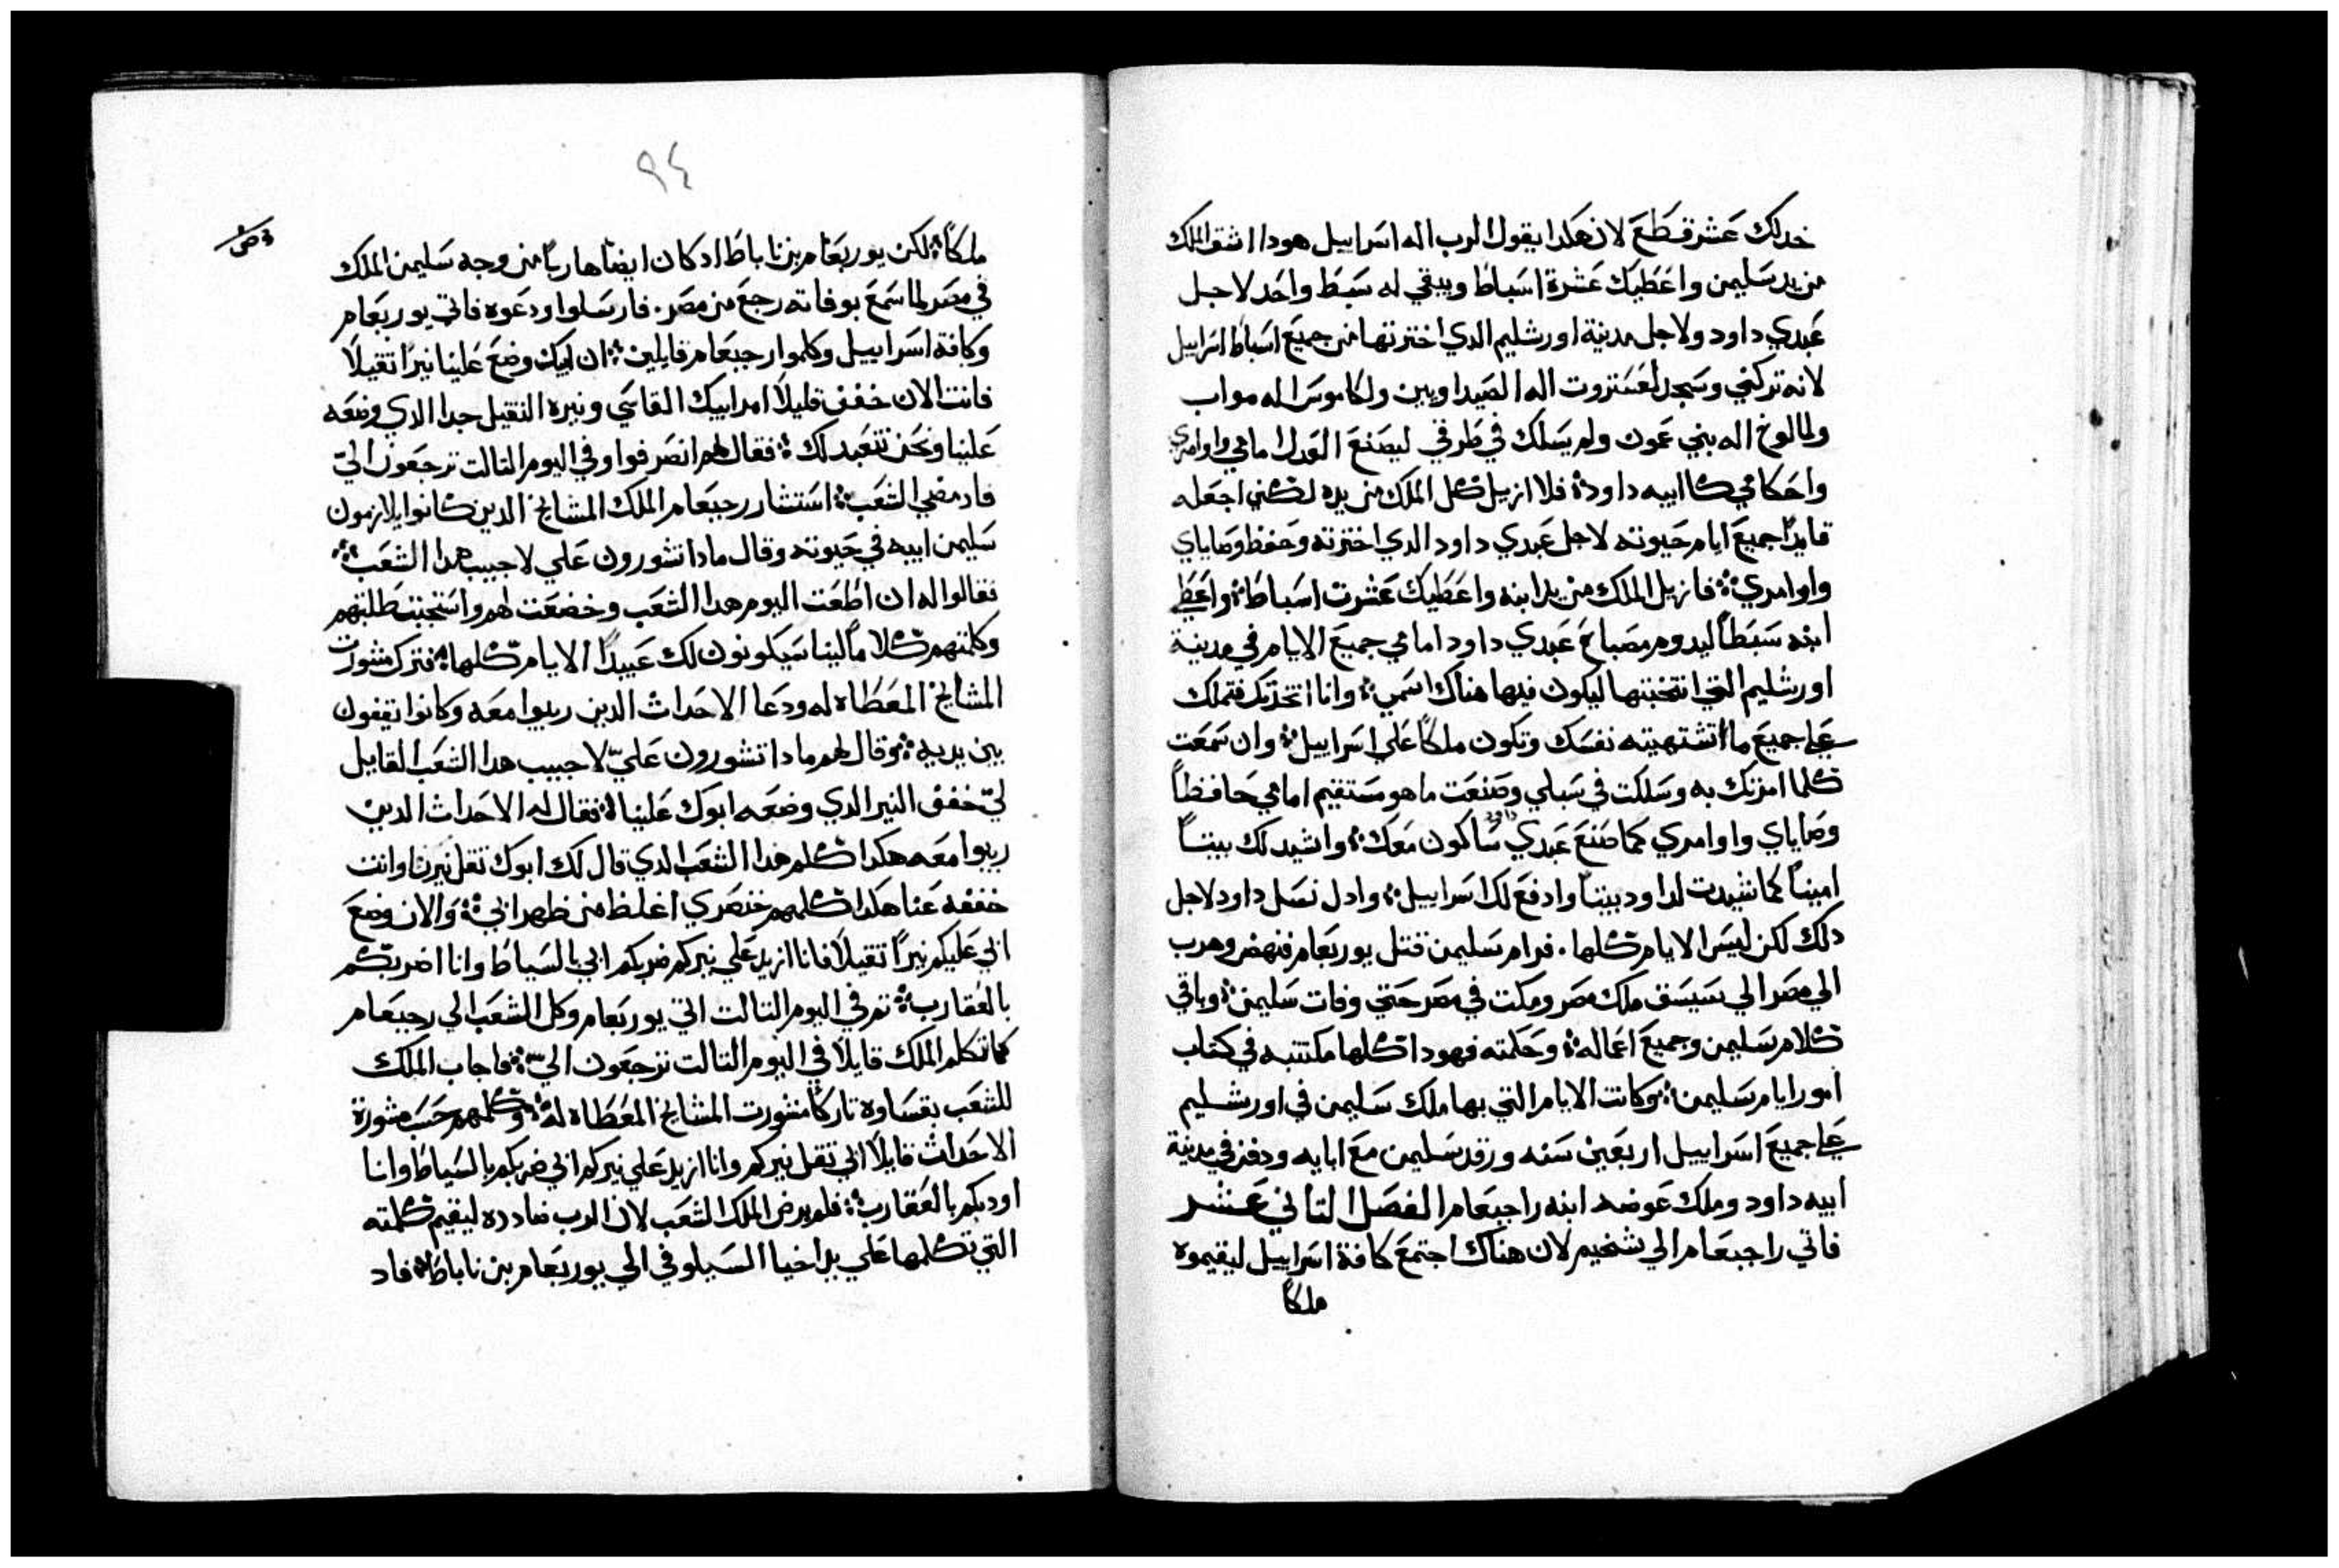 خدلك عشر قطع لان هكدا يقول الرب اله اسراييل هودا اشق الملك
من يد سليمن واعطيك عشرة اسباط ويبقي له سبط واحد لاجل
عبدي داود ولاجل مدينة اورشليم الدي اخترتها من جميع اسباط اسراييل
لانه تركني وسجد لعستروت اله الصيداويين ولكاموس اله مواب
ولمالوخ اله بني عمون ولم يسلك في طرقي ليصنع العدل امامي واوامري
واحكامي كابيه داود فلا ازيل كل الملك من يده لكني اجعله
قايدا جميع ايام حيوته لاجل عبدي داود الدي اخترته وحفظ وصاياي
واوامري فازيل الملك من يد ابنه واعطيك عشرت اسباط واعطي
ابنه سبطا ليدوم مصباح عبدي داود امامي جميع الايام في مدينة
اورشليم التي انتخبتها ليكون فيها هناك اسمي وانا اتخدك فتملك
علي جميع ما تشتهيته نفسك وتكون ملكا علي اسراييل وان سمعت
كلما امرتك به وسلكت في سبلي وصنعت ما هو مستقيم امامي حافظا
وصاياي واوامري كما صنع عبدي داود ساكون معك واشيد لك بيتا
امينا كما شيدت لداود بيتا وادفع لك اسراييل وادل نسل داود لاجل
دلك لكن ليس الايام كلها. فرام سليمن قتل يوربعام فنهض وهرب
الي مصر الي سيسق ملك مصر ومكت في مصر حتي وفات سليمن وباقي
كلام سليمن وجميع اعماله وحكمته فهودا كلها مكتتبه في كتاب
امور ايام سليمن وكانت الايام التي بها ملك سليمن في اورشليم
علي جميع اسراييل اربعين سنه ورقد سليمن مع ابايه ودفن في مدينة
ابيه داود وملك عوضه ابنه راجبعام الفصل التاني عشر
فاتي راجبعام الي شخيم لان هناك اجتمع كافة اسراييل ليقيموه
ملكا
٩٤
ملكا لكن يوربعام بن ناباط اد كان ايضا هاربا من وجه سليمن الملك
في مصر لما سمع بوفاته رجع من مصر. فارسلوا ودعوه فاتي يوربعام
وكافة اسراييل وكلموا رجبعام قايلين ان ابيك وضع علينا نيرا تقيلا
فانت الان خفف قليلا امر ابيك القاسي ونيره التقيل جدا الدي وضعه
علينا ونحن نتعبد لك فقال لهم انصرفوا وفي اليوم التالت ترجعون الي
فاد مضي الشعب استشار رجبعام الملك المشايخ الدين كانوا يلازمون
سليمن ابيه في حيوته وقال مادا تشورون علي لاجيب هدا الشعب
فقالوا له ان اطعت اليوم هدا الشعب وخضعت لهم واستجبت طلبتهم
وكلمتهم كلاما لينا سيكونون لك عبيدا الايام كلها فترك مشورت
المشايخ المعطاه له ودعا الاحداث الدين ربيوا معه وكانوا يقفون
بين يديه وقال لهم مادا تشورون علي لاجيب هدا الشعب القايل
لي خفف النير الدي وضعه ابوك علينا فقال له الاحداث الدين
ربيوا معه هكدا كلم هدا الشعب الدي قال لك ابوك تقل نيرنا وانت
خففه عنا هكدا كلمهم خنصري اغلظ من ظهر ابي والان وضع
ابي عليكم نيرا تقيلا فانا ازيد علي نيركم ضربكم ابي بالسياط وانا اضربكم
بالعقارب تم في اليوم التالت اتي يوربعام وكل الشعب الي رجبعام
كما تكلم الملك قايلا في اليوم التالت ترجعون الي فاجاب الملك
للشعب بقساوه تاركا مشورت المشايخ المعطاه له وكلمهم حسب مشورة
الاحداث قايلا ابي تقل نيركم وانا ازيد علي نيركم ابي ضربكم بالسياط وانا
اودبكم بالعقارب فلم يرض الملك الشعب لان الرب ضادده ليقيم كلمته
التي تكلمها علي يد اخيا السيلوفي الي يوربعام بن ناباط فاد